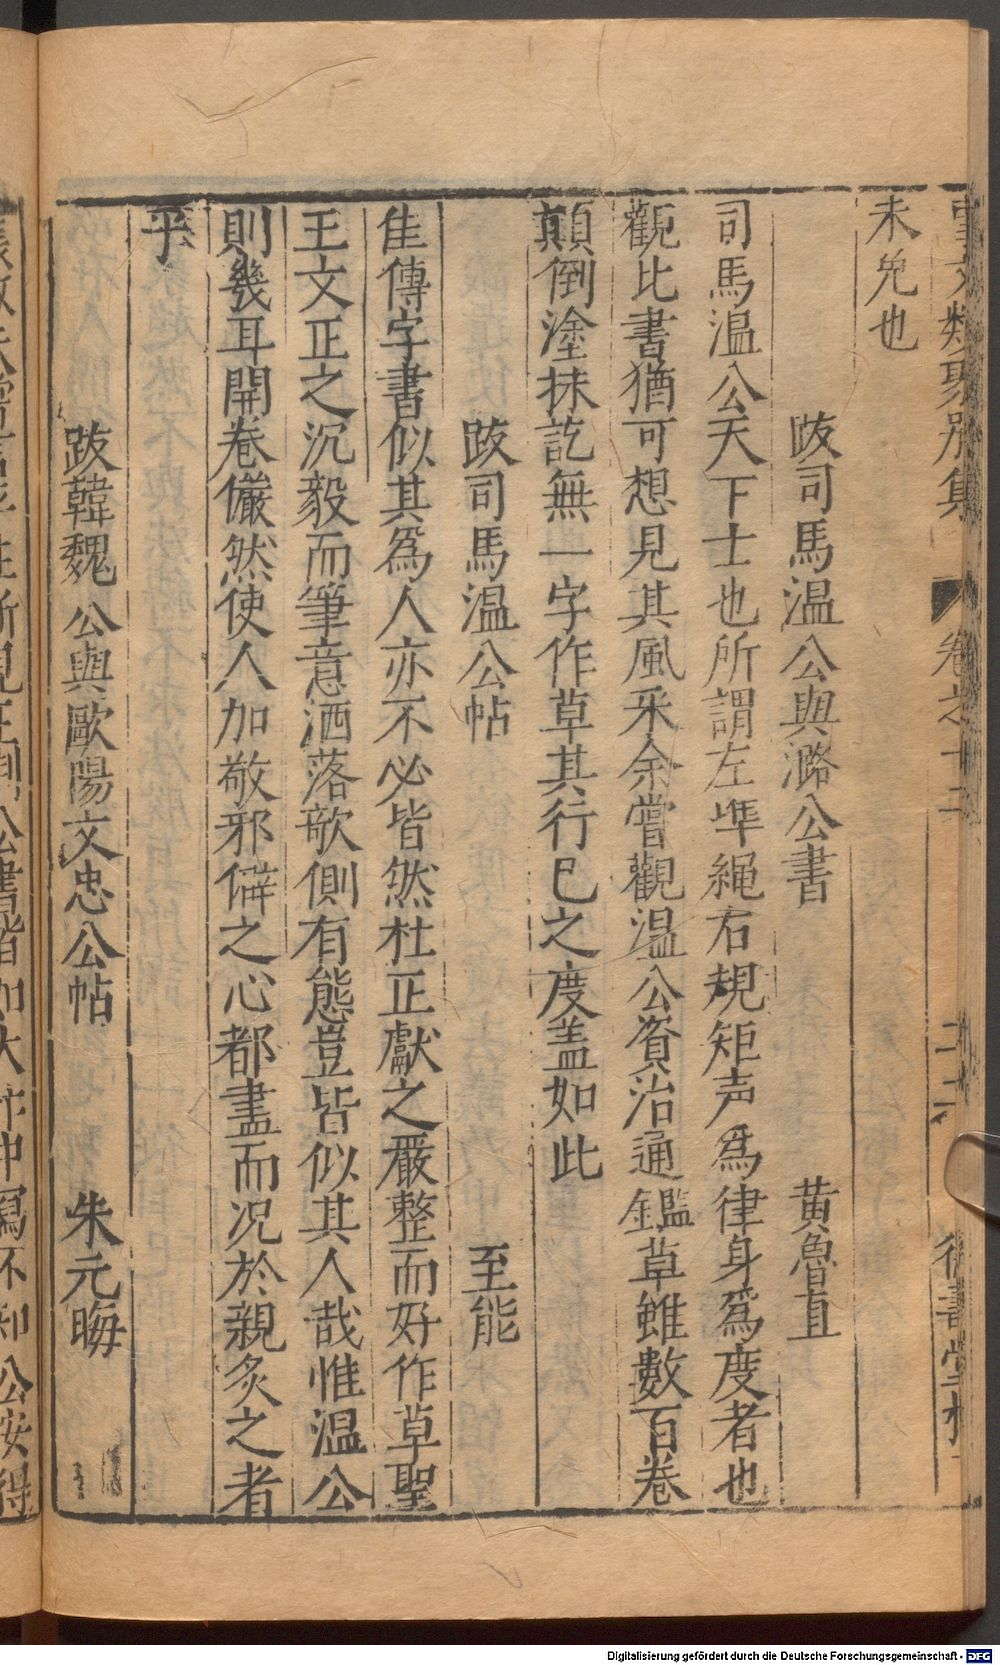 事文類聚別集 卷之十二
未免也
跋司馬温公與潞公書 黄魯直
司馬温公天下士也所謂左準繩右規矩声爲律身爲度者也
觀比書猶可想見其風采余嘗觀温公資治通鑑草雖數百卷
顛倒塗抹訖無一字作草其行已之度盖如此
跋司馬温公帖 至能
隹傳字書似其爲人亦不必皆然杜正獻之嚴整而好作草聖
王文正之沉毅而筆意洒落欹側有態豈皆似其人哉惟温公
則幾耳開卷儼然使人加敬邪僻之心都盡而况於親炙之者
乎
跋韓魏公與歐陽文忠公帖 朱元晦
公書皆如大 中寫不知公安得
Digitalisierung gefördert durch die Deutsche Forschungsgemeinschaft - DFG